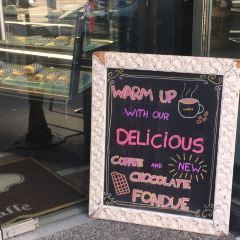 WARM UP
WITH OUR
DELiCiOUS
COFFEE AND NEW
CHOCOLATE
FONDUE
affe